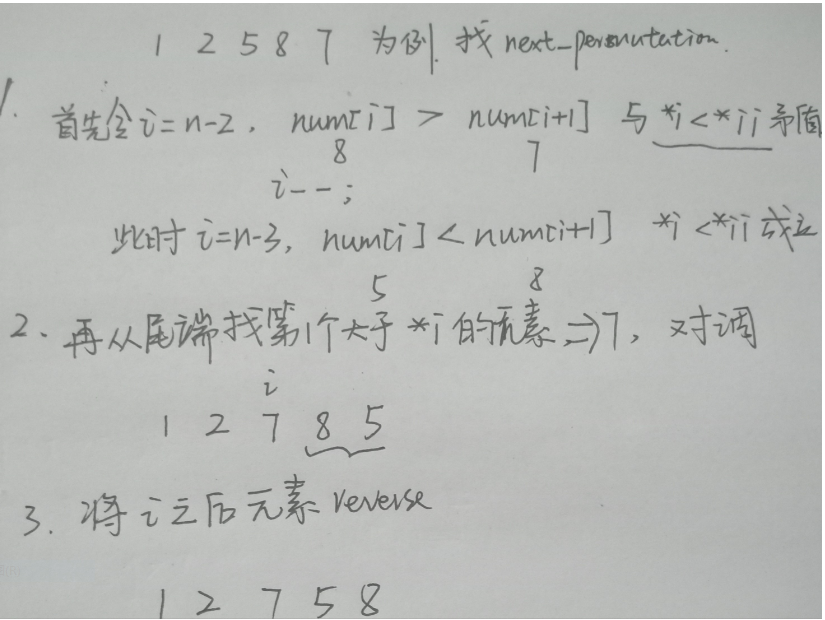 1 2 5 8 7 为例. 找 next_permutation.
1. 首先令 i=n-2, num[i] > num[i+1] 与 *i<*ii 矛盾
8 7
i--;
此时 i=n-3, num[i] < num[i+1] *i <*ii 成立
5 8
2、再从尾端找第1个大于 *i 的元素,⇒7, 对调
i
1 2 7 8 5
3. 将 i 之后元素 reverse
1 2 7 5 8